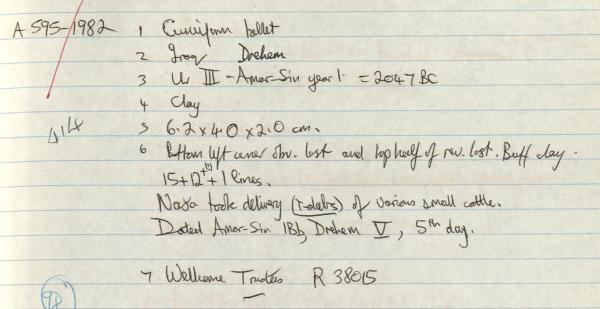 A 595-1982 1 Cuneiform tablet
2 Iraq Drehem
3 Ur III - Amar-Sin year 1. = 2047 BC
4 Clay
414
5 6.2 x 4.0 x 2.0 cm.
6 Bottom left corner obv. lost and top half of rev. lost. Buff clay.
15+12+(1)+1 lines.
Nasa took delivery (ì-dab5) of various small cattle.
Dated Amar-Sin 1Bb, Drehem V, 5th day.
7 Wellcome Trustees R 38015